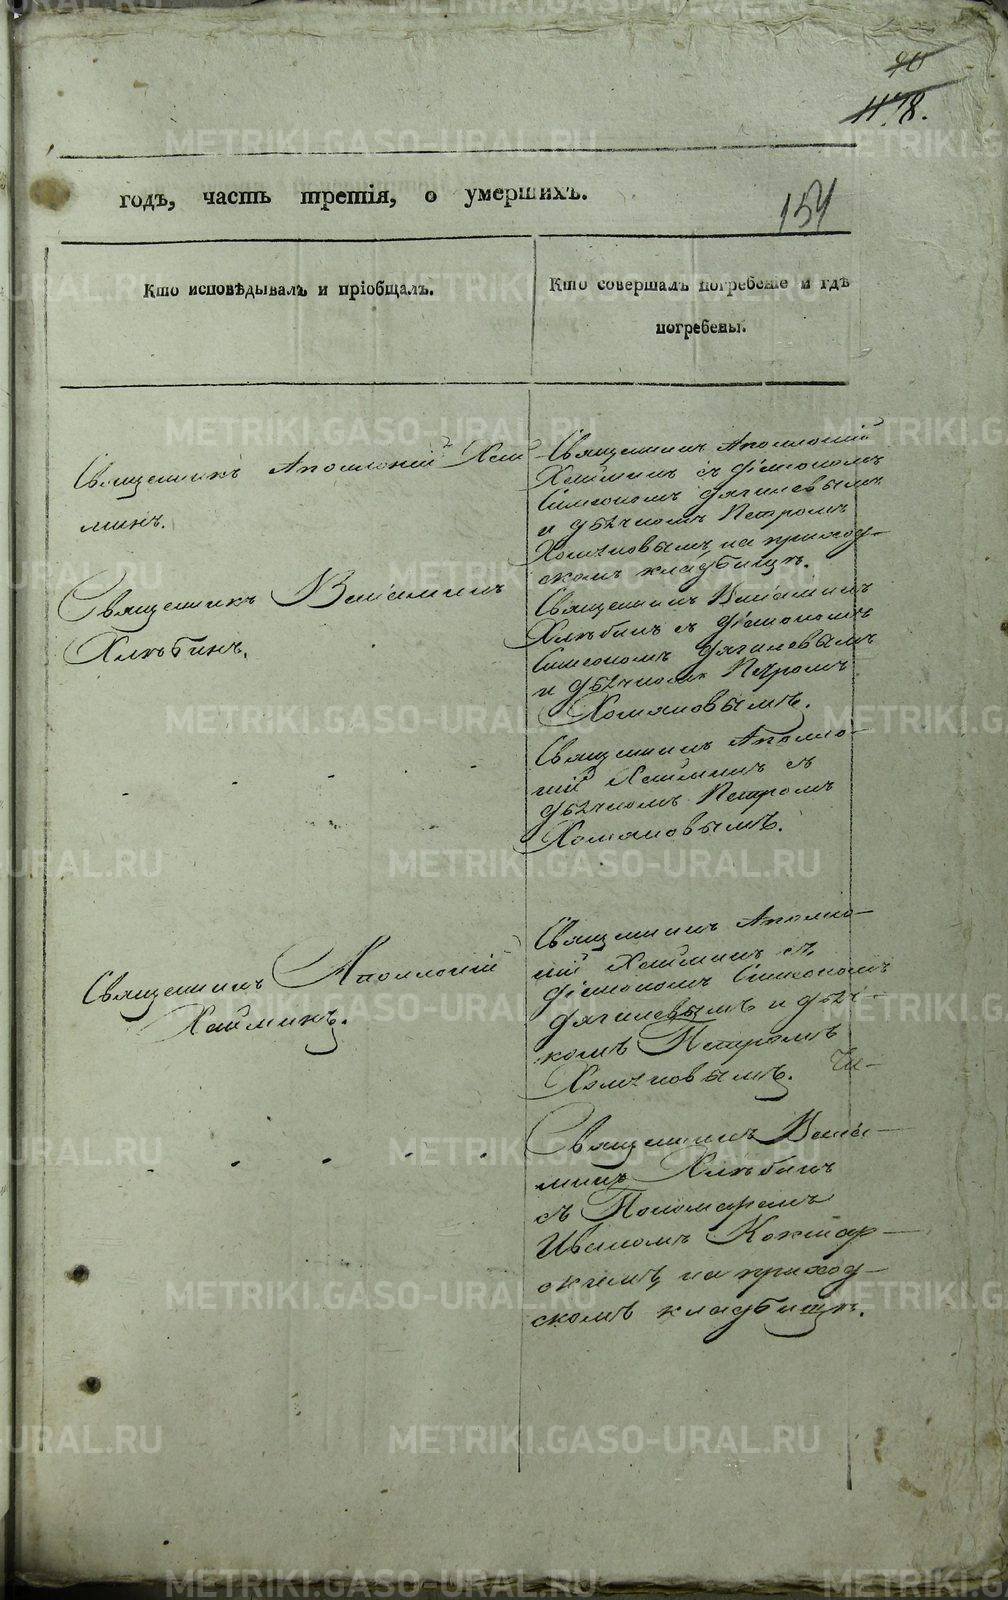 90
118.
154
годъ, часть третія, о умершихъ.
Кто исповѣдывалъ и пріобщалъ.
Кто совершалъ погребеніе и гдѣ
погребены.
Священникъ Аполлоній Хай
минъ.
Священникъ Аполлоній
Хайминъ съ діакономъ
Симеономъ Дягилевымъ
и дьячкомъ Петромъ
Хомяковымъ, на приход-
скомъ кладбищѣ.
Священникъ Веніаминъ
Хлѣбинъ.
Священникъ Веніаминъ
Хлѣбинъ съ діакономъ
Симеономъ Дягилевымъ
и дьячкомъ Петромъ
Хомяковымъ.
Священникъ Аполло-
ній Хайминъ съ
дьячкомъ Петромъ
Хомяковымъ.
Священникъ Аполлоній
Хайминъ.
Священникъ Аполло-
ній Хайминъ съ
діакономъ Симеономъ
Дягилевымъ и дьяч-
комъ Петромъ
Хомяковымъ.
Священникъ Веніа-
минъ Хлѣбинъ
съ Пономаремъ
Иваномъ Коктар-
скимъ, на приход-
скомъ кладбищѣ.
METRIKI.GASO-URAL.RU